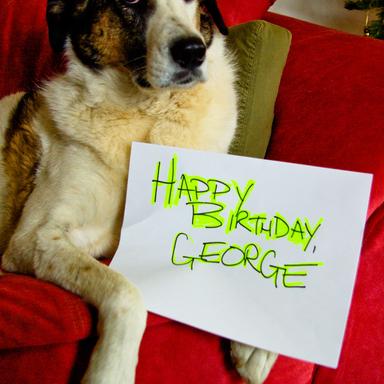 HAPPY
BIRTHDAY,
GEORGE